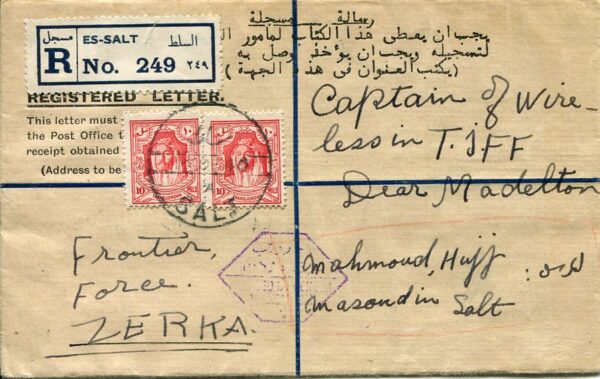 رسالة مسجلة
يجب ان يعطى هذا الكتاب لمأمور
لتسجيله ويجب ان يؤخذ وصل به
(يكتب العنوان فى هذه الجهة)
مسجل ES-SALT السلط
R No. 249 ٢٤٩
REGISTERED LETTER.
This letter must
the Post Office t
receipt obtained
(Address to be
10 10
SALT
Captain of Wire-
less in T.JFF
Dear Madelton
Frontier,
Force.
ZERKA.
Mahmoud, Hujj
Masoud in Salt